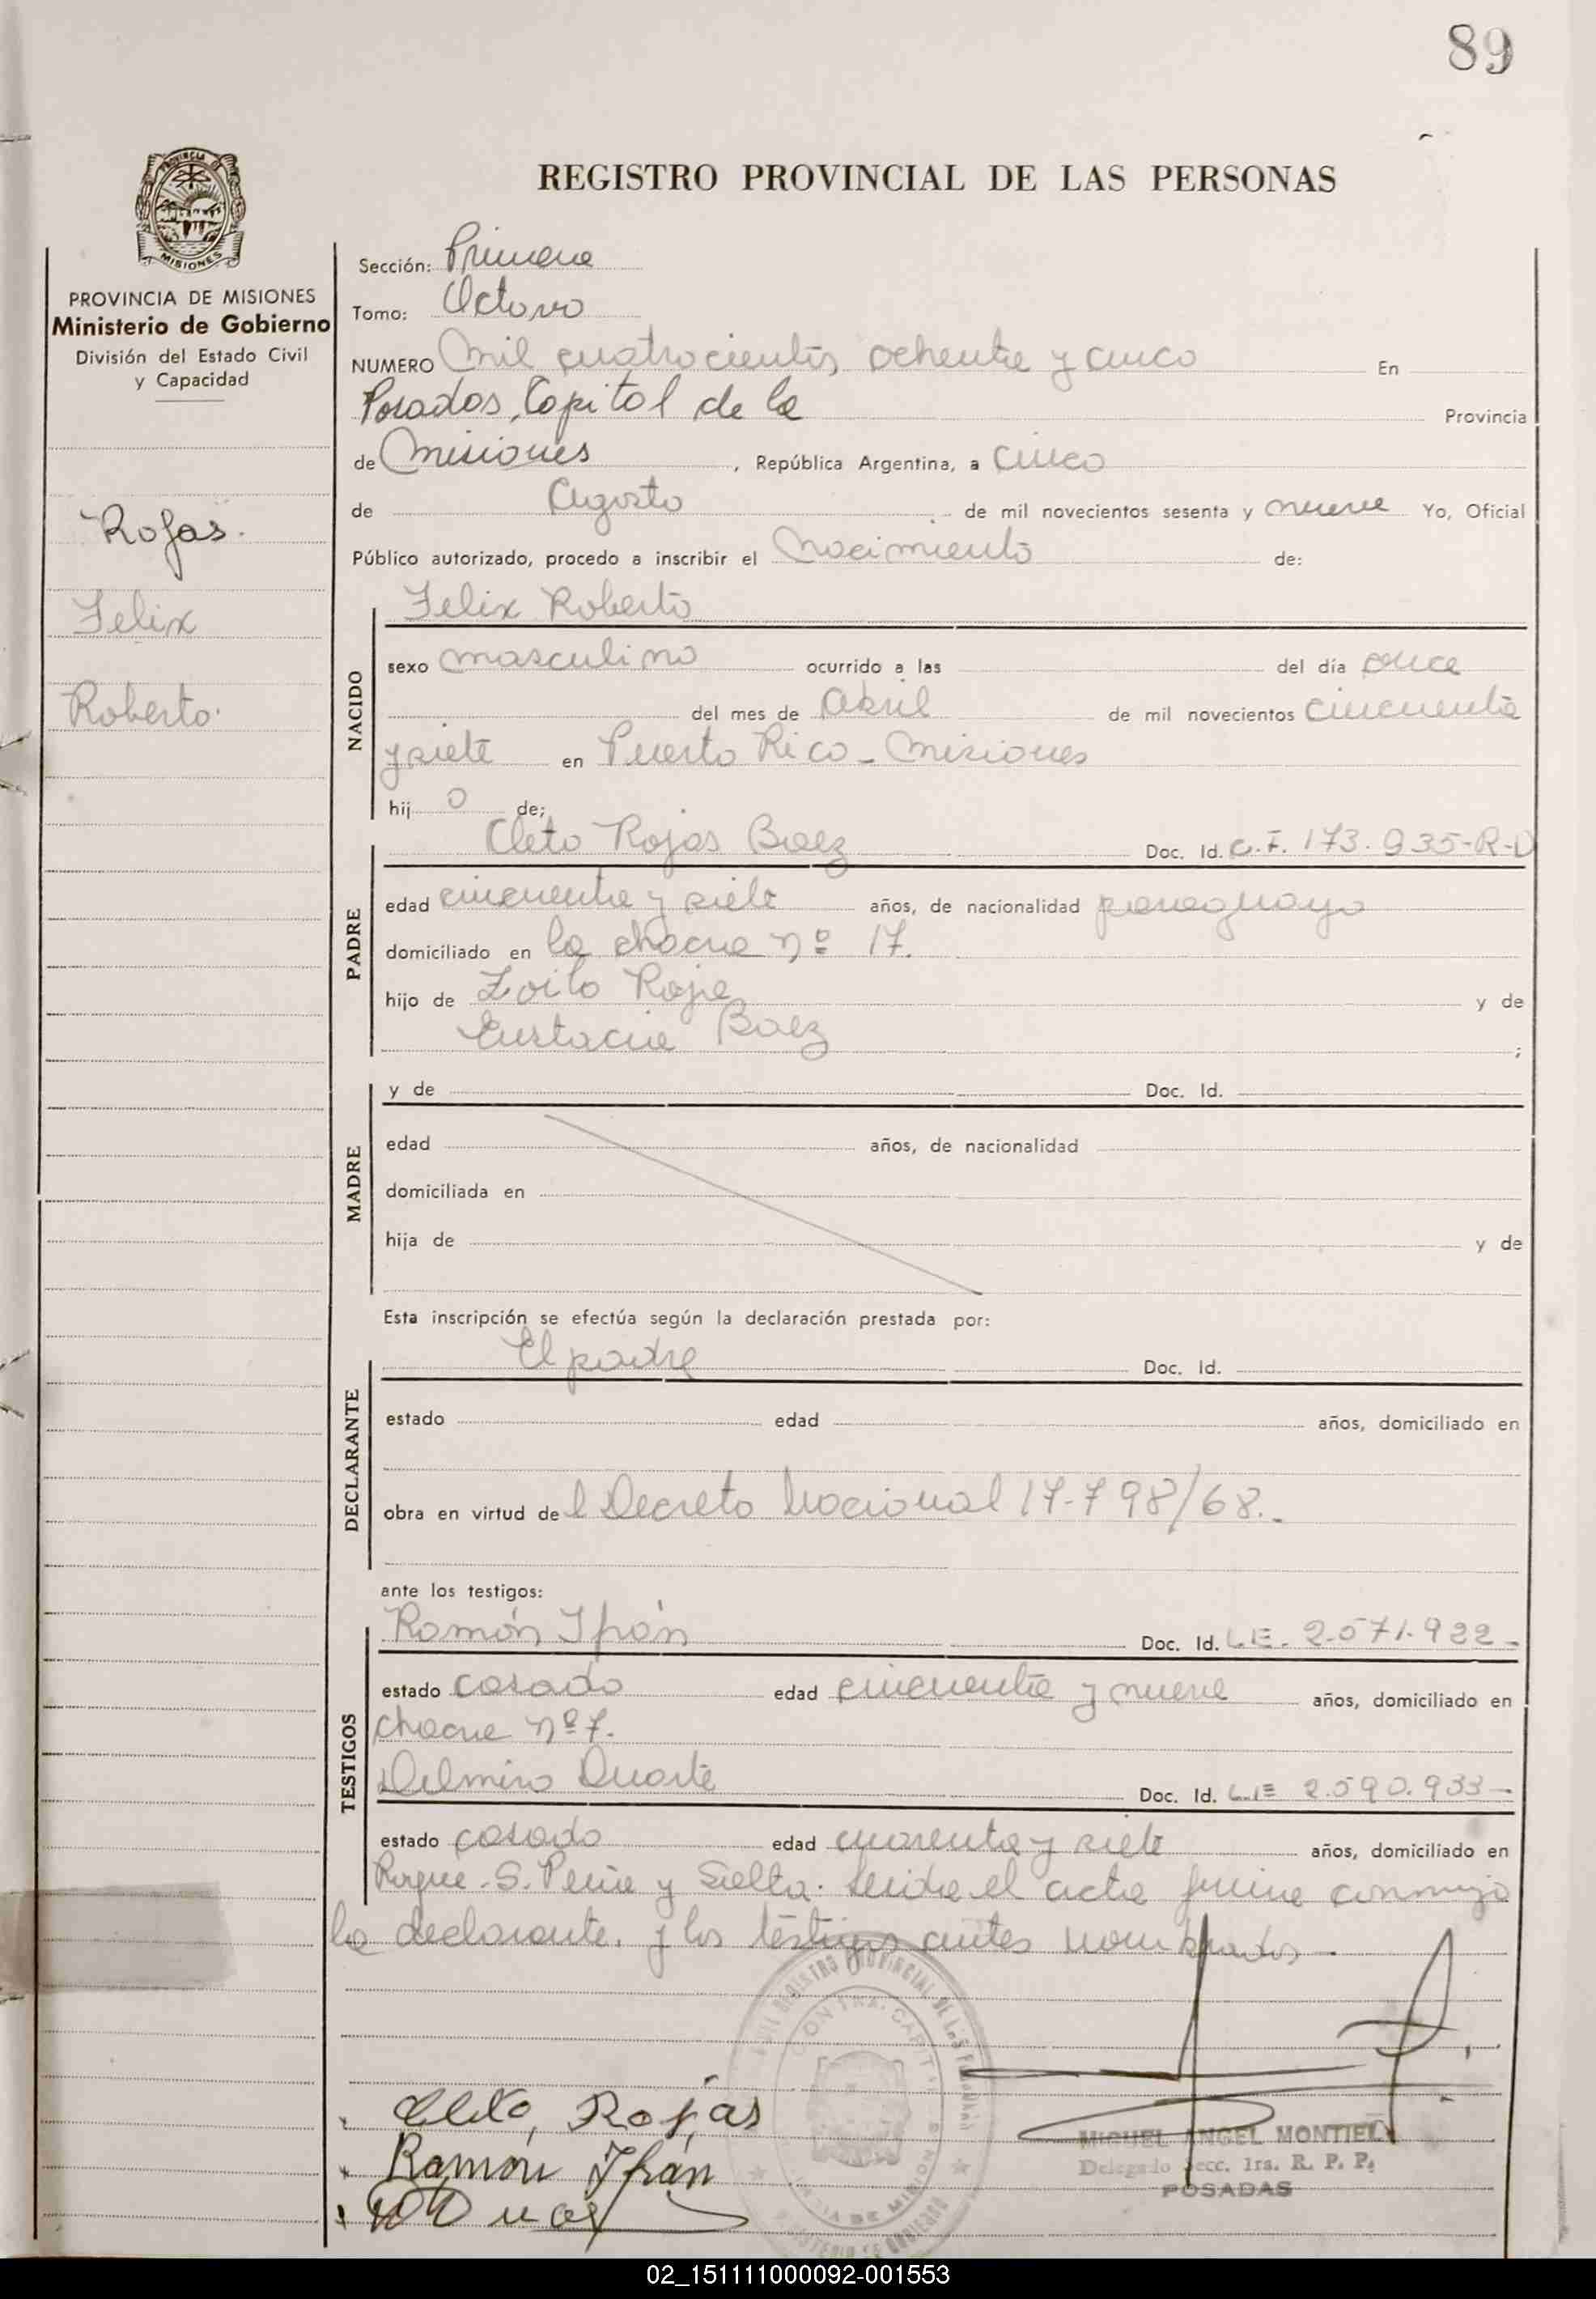 89
REGISTRO PROVINCIAL DE LAS PERSONAS
MISIONES
PROVINCIA DE MISIONES
Ministerio de Gobierno
División del Estado Civil
y Capacidad
Rojas.
Felix
Roberto.
Sección: Primera
Tomo: Octavo
NUMERO Mil cuatrocientos ochenta y cinco En
Posadas, Capital de la Provincia
de Misiones, República Argentina, a cinco
de Agosto de mil novecientos sesenta y nueve Yo, Oficial
Público autorizado, procedo a inscribir el Nacimiento de:
NACIDO
Felix Roberto
sexo masculino ocurrido a las del día once
del mes de Abril de mil novecientos cincuenta
y siete en Puerto Rico - Misiones
hijo de;
PADRE
Cleto Rojas Baez Doc. Id. C.I. 173.935-R-D
edad cincuenta y siete años, de nacionalidad paraguayo
domiciliado en la chacra nº 17.
hijo de Zoilo Roja y de
Eustacia Baez ;
MADRE
y de Doc. Id.
edad años, de nacionalidad
domiciliada en
hija de y de
Esta inscripción se efectúa según la declaración prestada por:
DECLARANTE
El padre Doc. Id.
estado edad años, domiciliado en
obra en virtud del Decreto Nacional 17-798/68.-
ante los testigos:
TESTIGOS
Ramón Ifrán Doc. Id. L.E. 2.571.922-
estado casado edad cincuenta y nueve años, domiciliado en
chacra nº 7.
Delmiro Duarte Doc. Id. L.E 2.590.933-
estado casado edad cuarenta y siete años, domiciliado en
Roque. S. Peña y Salta. Leida el acta firma conmigo
la declarante. y los testigos antes nombrados-
Cleto, Rojas
Ramón Ifrán
MIGUEL ANGEL MONTIEL
Delegado Secc. 1ra. R. P. P.
POSADAS
02_151111000092-001553